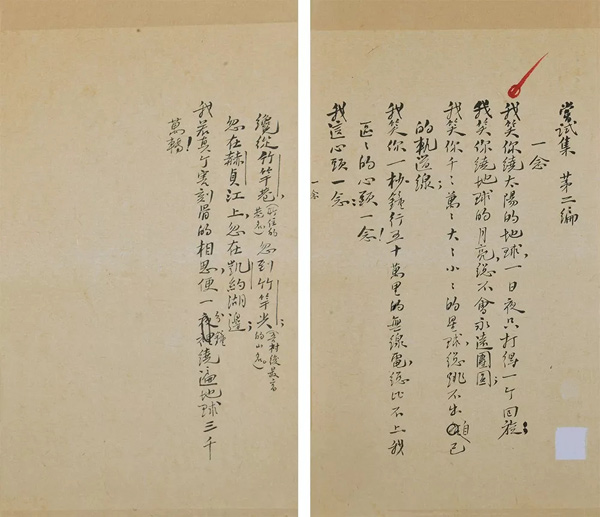 嘗試集 第二編
一念
我笑你繞太陽的地球，一日夜只打得一个回旋；
我笑你繞地球的月亮，總不會永遠團圓；
我笑你千〻萬〻大〻小〻的星球，總跳不出自己
的軌道線；
我笑你一秒鐘行五十萬里的無線電，總比不上我
區〻的心頭一念！
我這心頭一念：
一念
纔從竹竿巷（所住的巷名），忽到竹竿尖（吾村後最高的山名）；
忽在赫貞江上，忽在凱約湖邊；
我若真个害刻骨的相思，便一分鐘繞遍地球三千
萬轉！